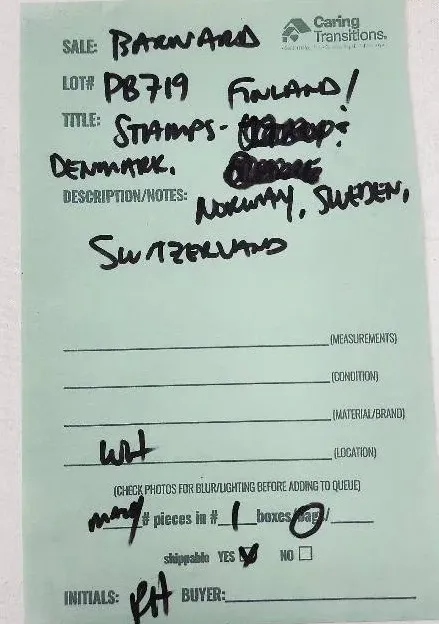 SALE: BARNARD
Caring
Transitions®
LOT# PB719 FINLAND!
TITLE: STAMPS-
DENMARK.
DESCRIPTION/NOTES: NORWAY, SWEDEN,
SWITZERLAND
(MEASUREMENTS)
(CONDITION)
(MATERIAL/BRAND)
WH (LOCATION)
(CHECK PHOTOS FOR BLUR/LIGHTING BEFORE ADDING TO QUEUE)
many # pieces in # 1 boxes/bags/
shippable YES NO
INITIALS: RH BUYER: